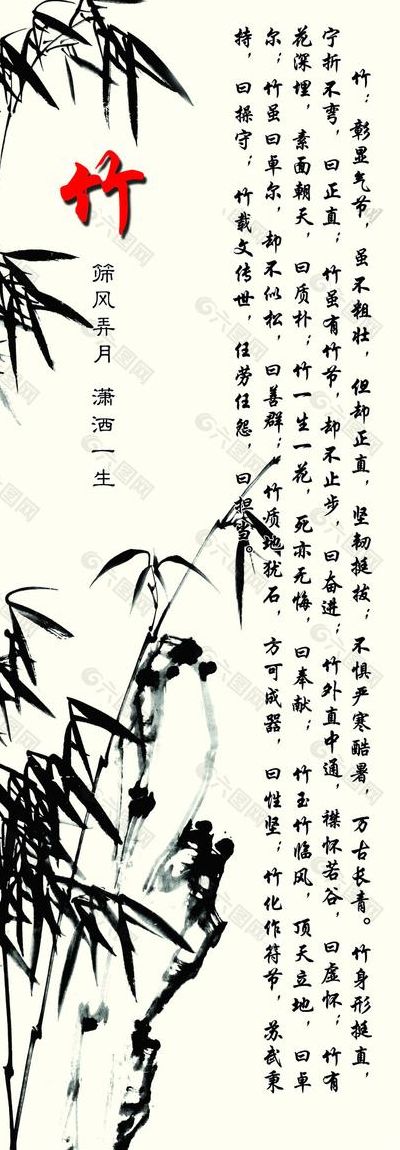 竹：彰显气节，虽不粗壮，但却正直，坚韧挺拔；不惧严寒酷暑，万古长青。竹身形挺直，
宁折不弯，曰正直；竹虽有竹节，却不止步，曰奋进；竹外直中通，襟怀若谷，曰虚怀；竹有
花深埋，素面朝天，曰质朴；竹一生一花，死亦无悔，曰奉献；竹玉竹临风，顶天立地，曰卓
尔；竹虽曰卓尔，却不似松，曰善群；竹质地犹石，方可成器，曰性坚；竹化作符节，苏武秉
持，曰操守；竹载文传世，任劳任怨，曰担当。
竹
筛风弄月 潇洒一生